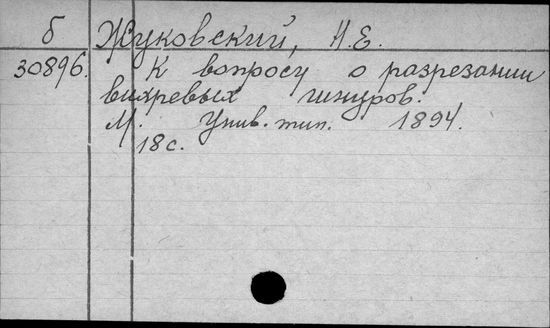 б Жуковский, Н.Е.
30896. К вопросу о разрезании
вихревых шнуров.
М. Унив. тип. 1894.
18 с.